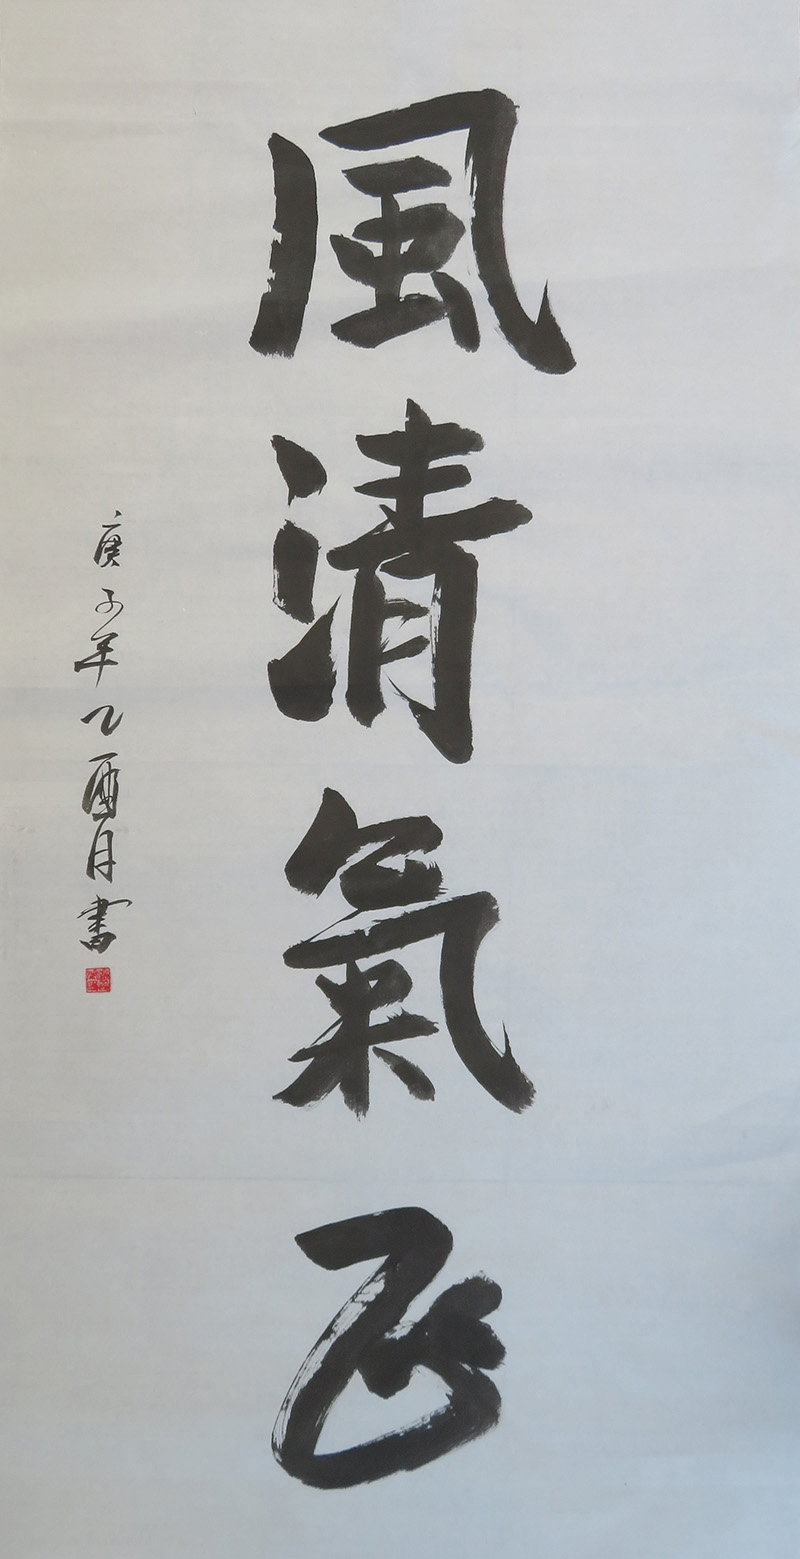 風清氣正
庚子年乙酉月書